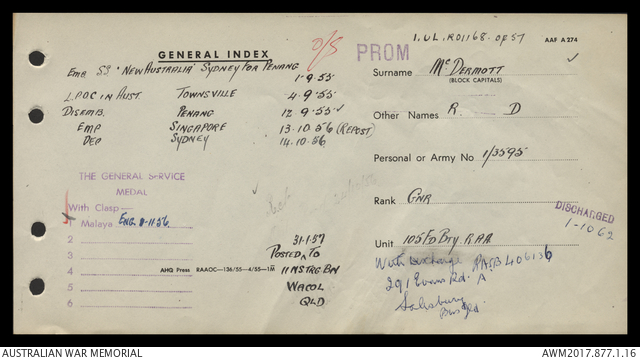 GENERAL INDEX
O/S
PROM
1.UL.R01168. OF 57
AAF A 274
Emb SS "NEW AUSTRALIA" SYDNEY FOR PENANG
1-9-55
L.P.O.C IN AUST. TOWNSVILLE 4-9-55
DISEMB. PENANG 12-9-55
EMP SINGAPORE 13.10.56 (REPOST)
DEP SYDNEY 14.10.56
Surname McDERMOTT
(BLOCK CAPITALS)
Other Names R. D
Personal or Army No 1/3595
Rank GNR
Unit 105 FD BTY RAA
DISCHARGED
1-10 62
THE GENERAL SERVICE
MEDAL
With Clasp—
1 Malaya ENG. 8-11-56
2
3
4
5
6
31-1-57
POSTED TO
11 NSTRG BN
WACOL
QLD
AHQ Press RAAOC—136/55—4/55—1M
291 Evans Rd.
Salisbury
AUSTRALIAN WAR MEMORIAL
AWM2017.877.1.16